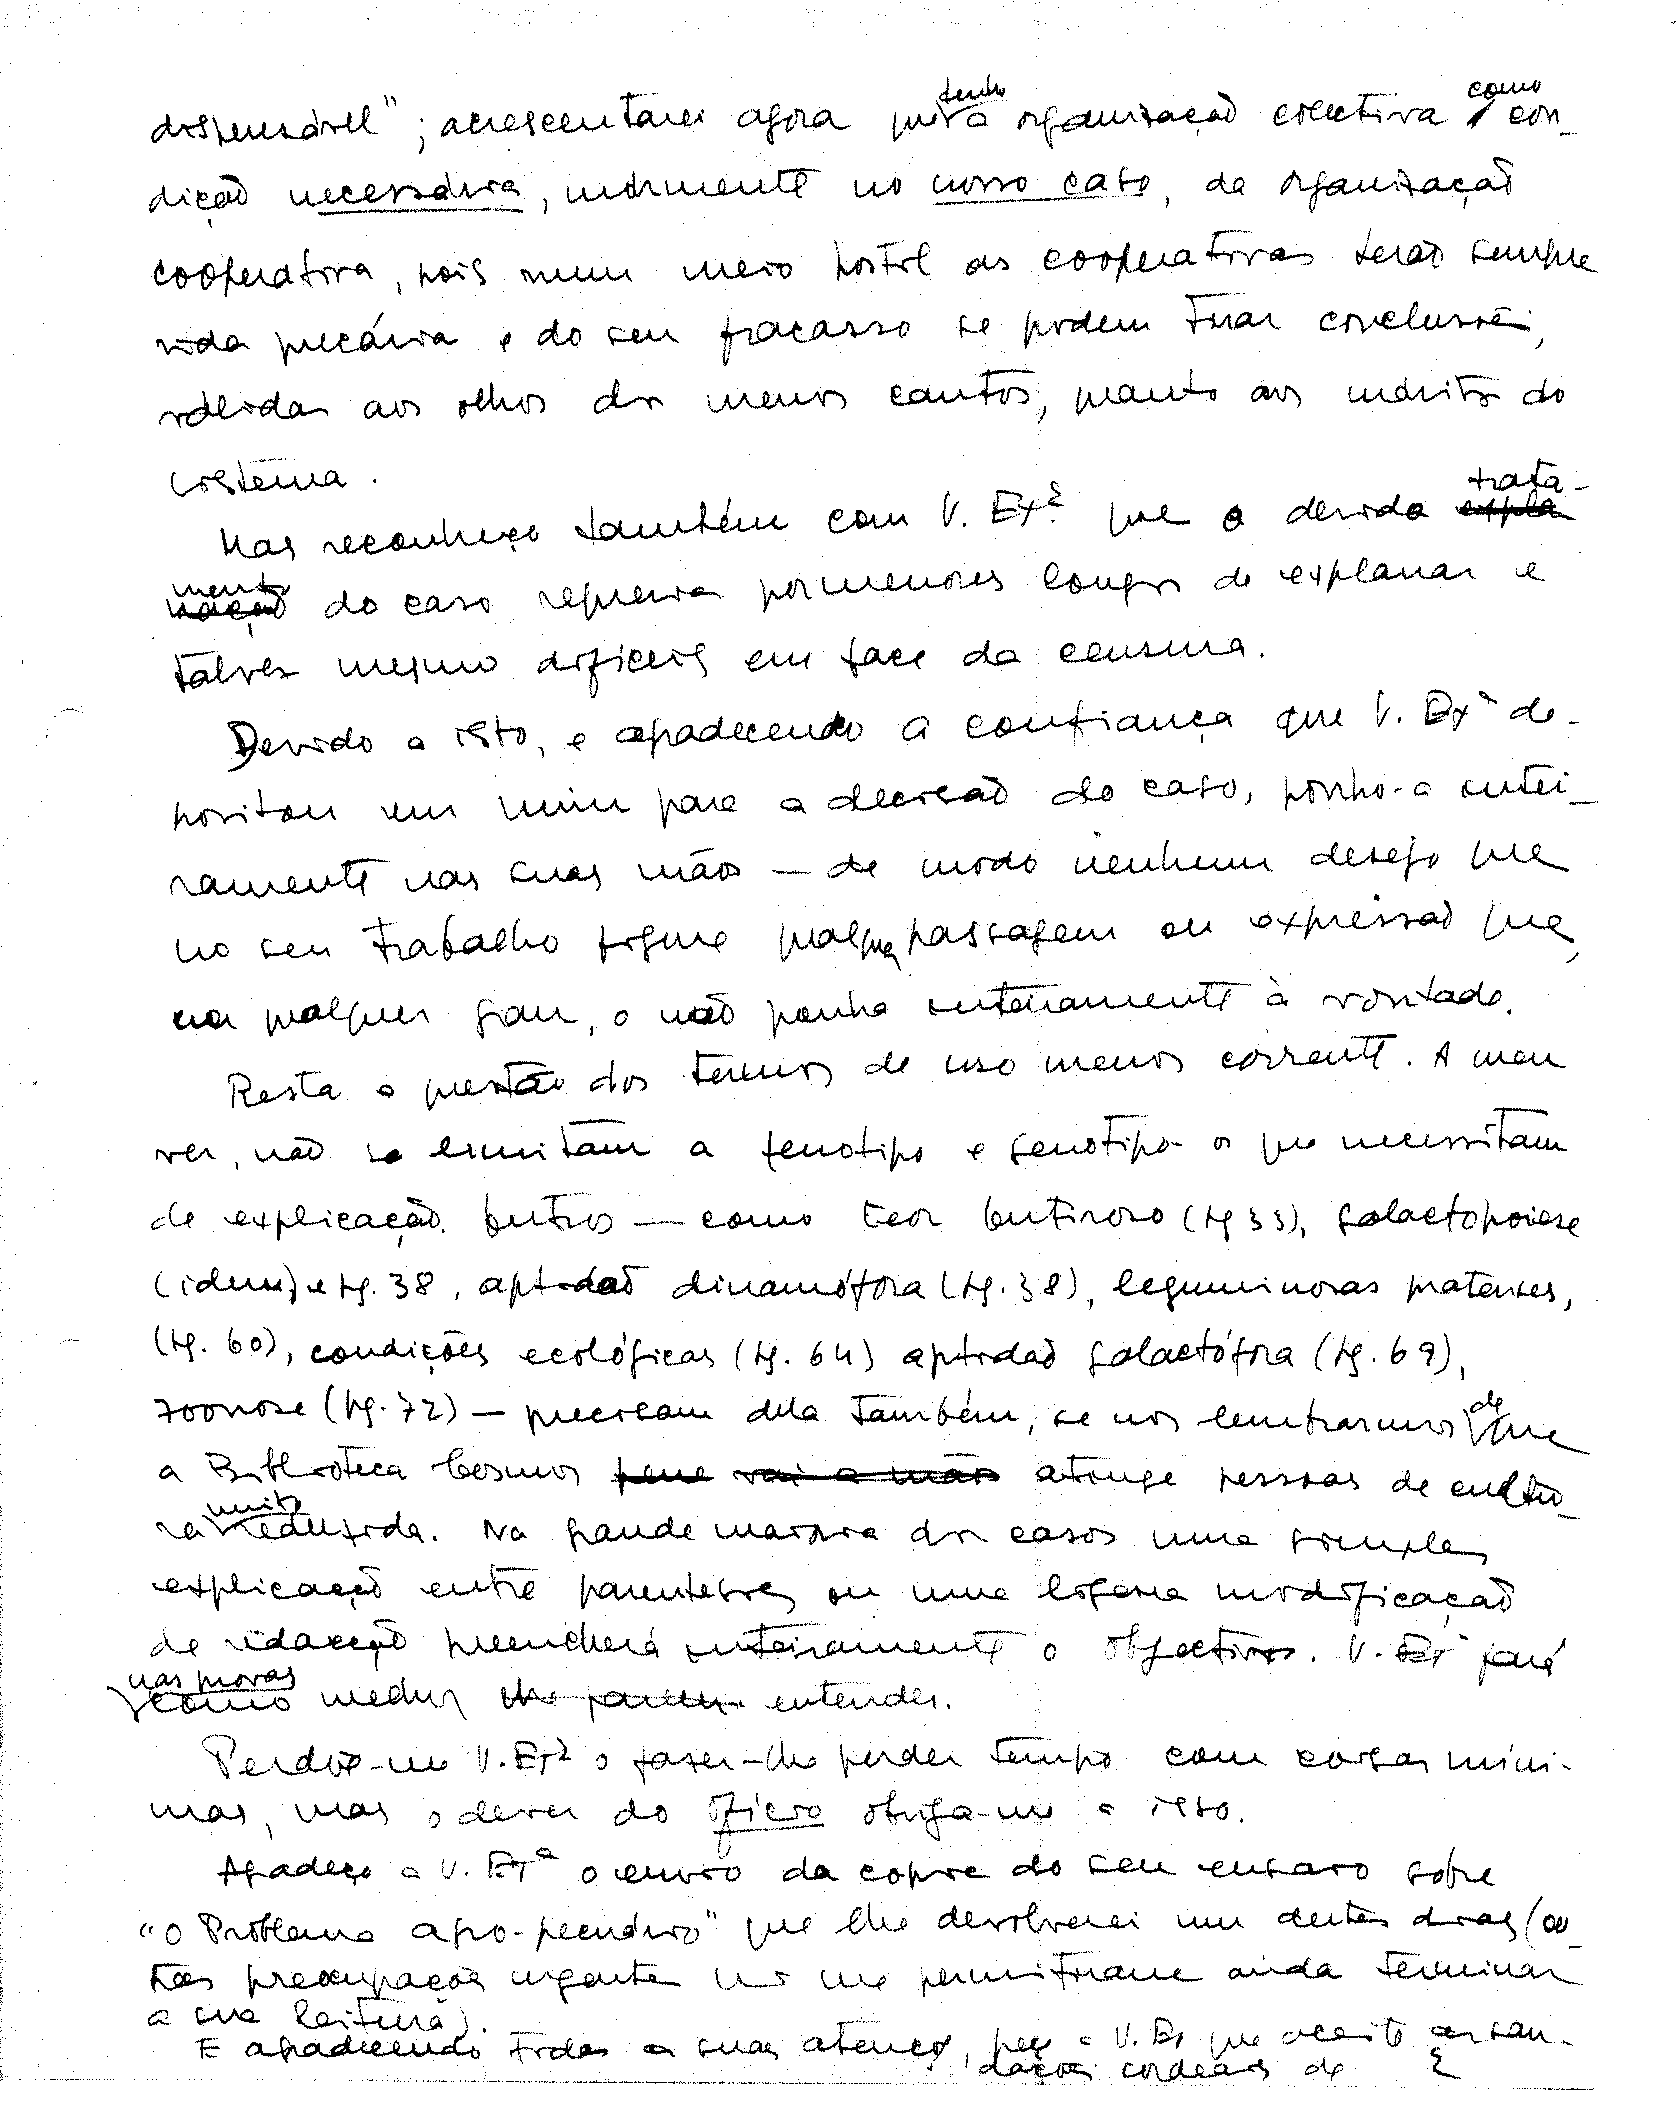 dispensável"; acrescentarei agora que tenho a organização colectiva como con-
dição necessária, mòrmente no nosso caso, da organização
cooperativa, pois num meio hostil as cooperativas terão sempre
vida precária e do seu fracasso se podem tirar conclusões,
válidas aos olhos dos menos cautos, quanto aos méritos do
sistema.
Mas reconheço também com V. Exª que o devido trata-
mento do caso requereria pormenores longos de explanar e
talvez mesmo difíceis em face da censura.
Devido a isto, e agradecendo a confiança que V. Exª de-
positou em mim para a decisão do caso, ponho-a intei-
ramente nas suas mãos — de modo nenhum desejo que
no seu trabalho figure qualquer passagem ou expressão que,
em qualquer grau, o não ponha inteiramente à vontade.
Resta a questão dos termos de uso menos corrente. A meu
ver, não se limitam a fenotipo e genotipo os que necessitam
de explicação. Outros — como teor butiroso (pg 33), galactopoiese
(idem) e pg. 38, aptidão dinamófora (pg. 38), leguminosas pratenses,
(pg. 60), condições ecológicas (pg. 64) aptidão galactófora (pg. 69),
zoonose (pg. 72) — precisam dela também, se nos lembrarmos de que
a Biblioteca Cosmos atinge pessoas de cultu-
ra muito reduzida. Na grande maioria dos casos uma simples
explicação entre parenteses ou uma ligeira modificação
de redacção preencherá inteiramente o objectivo. V. Exª fará
nas provas como melhor entender.
Perdoe-me V. Exª o fazer-lhe perder tempo com coisas míni-
mas, mas o dever do ofício obriga-me a isto.
Agradeço a V. Exª o envio da copia do seu ensaio sobre
"O Problema agro-pecuário" que lhe devolverei um destes dias (ou-
tras preocupações urgentes não me permitiram ainda terminar
a sua leitura).
E agradecendo todas as suas atenções, peço a V. Ex que aceite as sau-
dações cordeais de